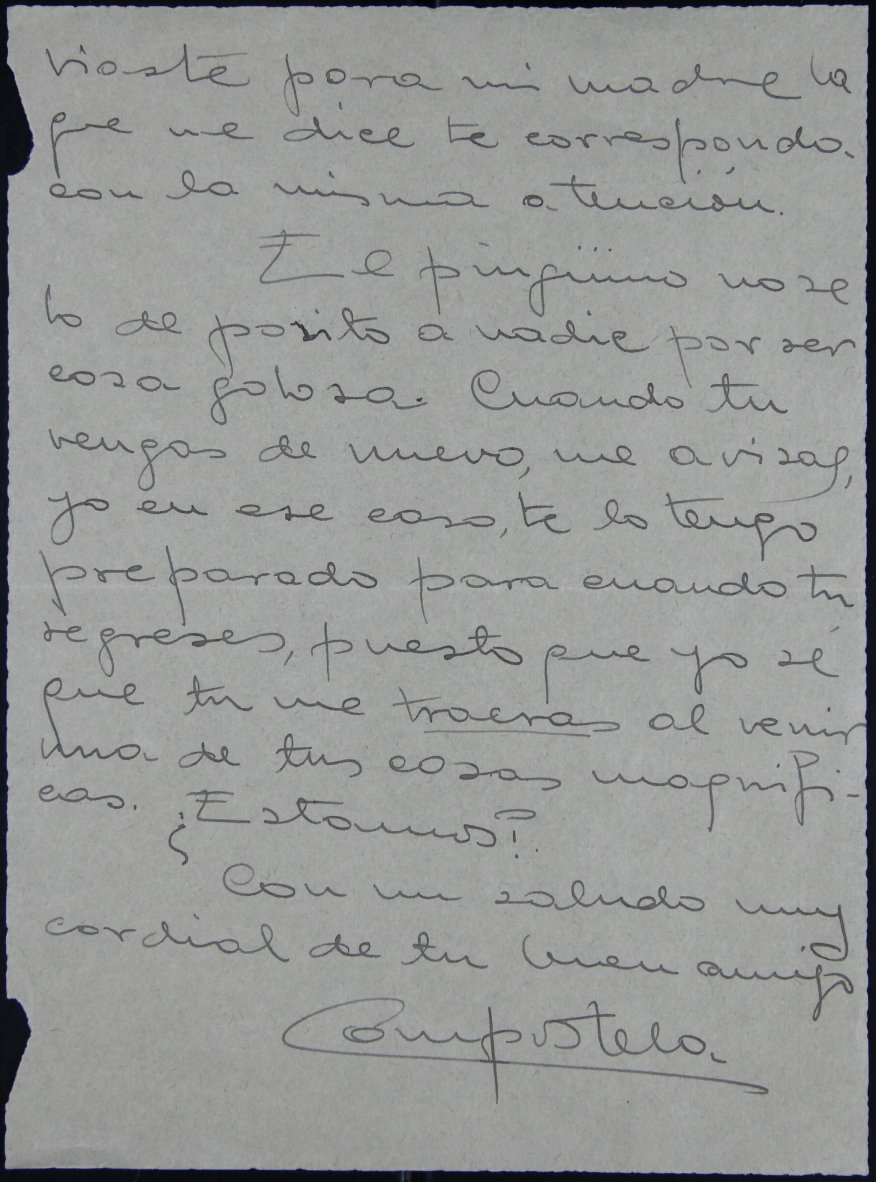 viaste para mi madre la
que me dice te correspondo.
con la misma atención.
El pingüino no se
lo deposito a nadie por ser
cosa golosa. Cuando tu
vengas de nuevo, me avisas,
yo en ese caso, te lo tengo
preparado para cuando tu
regreses, puesto que yo sé
que tu me traeras al venir
una de tus cosas magnifi-
cas. ¿Estamos?
Con un saludo muy
cordial de tu buen amigo
Compostela.